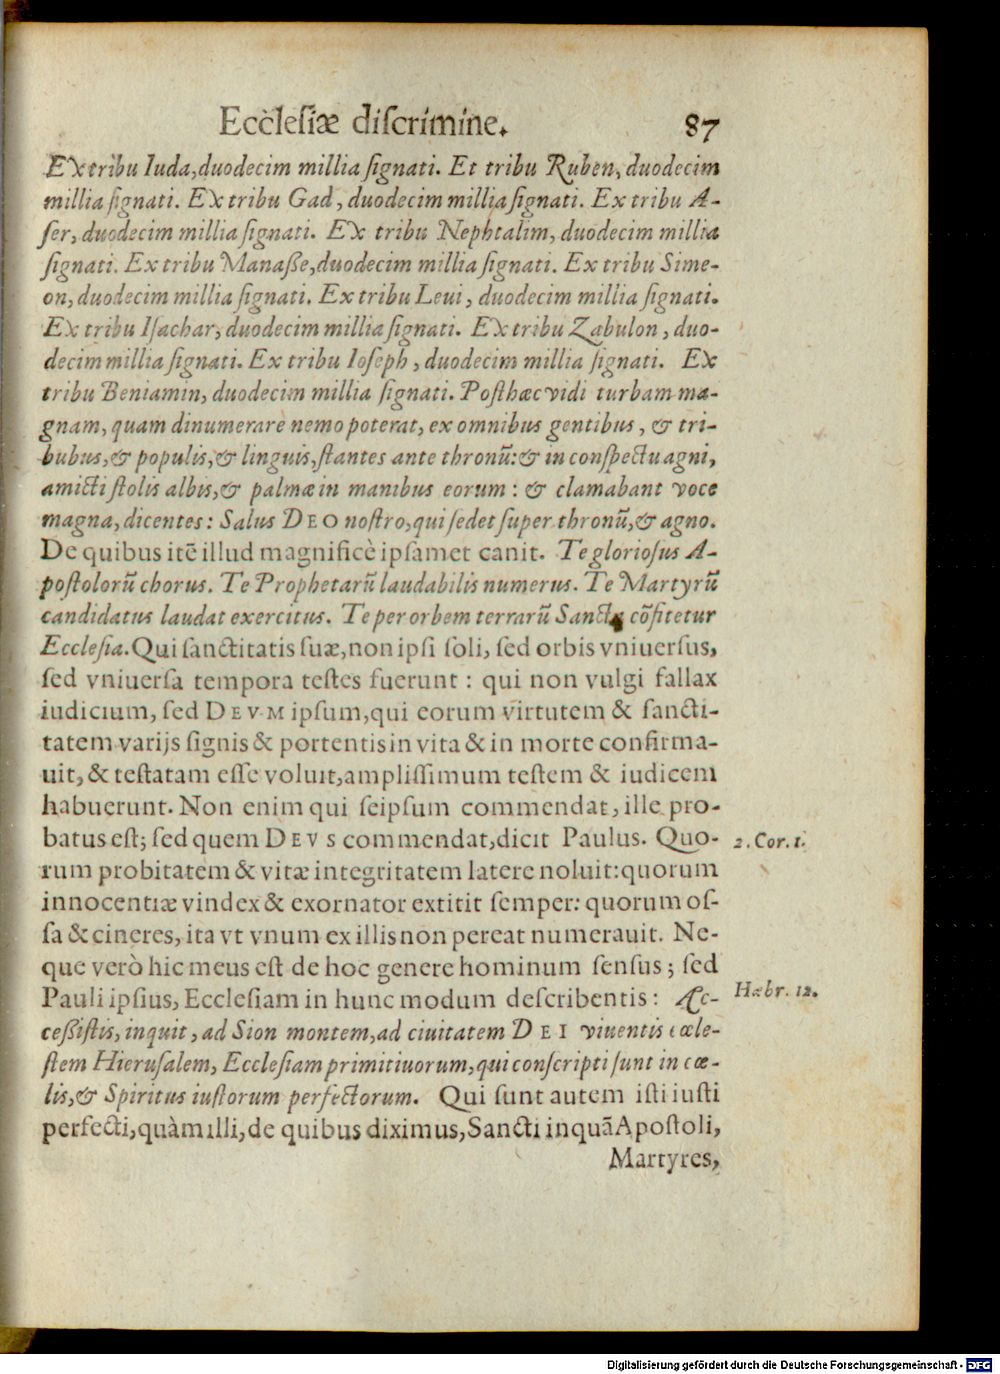 Eccleſiæ diſcrimine.
87
Ex tribu Iuda, duodecim millia ſignati. Et tribu Ruben, duodecim
millia ſignati. Ex tribu Gad, duodecim millia ſignati. Ex tribu A-
ſer, duodecim millia ſignati. Ex tribu Nephtalim, duodecim millia
ſignati. Ex tribu Manaſſe, duodecim millia ſignati. Ex tribu Sime-
on, duodecim millia ſignati. Ex tribu Leui, duodecim millia ſignati.
Ex tribu Iſachar, duodecim millia ſignati. Ex tribu Zabulon, duo-
decim millia ſignati. Ex tribu Ioſeph, duodecim millia ſignati. Ex
tribu Beniamin, duodecim millia ſignati. Poſthæc vidi turbam ma-
gnam, quam dinumerare nemo poterat, ex omnibus gentibus, & tri-
bubus, & populis, & linguis, ſtantes ante thronũ: & in conſpectu agni,
amicti ſtolis albis, & palmæ in manibus eorum: & clamabant voce
magna, dicentes: Salus DEO noſtro, qui ſedet ſuper thronũ, & agno.
De quibus itẽ illud magnificè ipſamet canit. Te glorioſus A-
poſtolorũ chorus. Te Prophetarũ laudabilis numerus. Te Martyrũ
candidatus laudat exercitus. Te per orbem terrarũ Sancta cõfitetur
Eccleſia. Qui ſanctitatis ſuæ, non ipſi ſoli, ſed orbis vniuerſus,
ſed vniuerſa tempora teſtes fuerunt: qui non vulgi fallax
iudicium, ſed DEVM ipſum, qui eorum virtutem & ſancti-
tatem varijs ſignis & portentis in vita & in morte confirma-
uit, & teſtatam eſſe voluit, ampliſſimum teſtem & iudicem
habuerunt. Non enim qui ſeipſum commendat, ille pro-
batus eſt; ſed quem DEVS commendat, dicit Paulus. Quo-
2. Cor. 1.
rum probitatem & vitæ integritatem latere noluit: quorum
innocentiæ vindex & exornator extitit ſemper: quorum oſ-
ſa & cineres, ita vt vnum ex illis non pereat numerauit. Ne-
que verò hic meus eſt de hoc genere hominum ſenſus; ſed
Pauli ipſius, Eccleſiam in hunc modum deſcribentis: Ac-
Hæbr. 12.
ceſſiſtis, inquit, ad Sion montem, ad ciuitatem DEI viuentis cœle-
ſtem Hieruſalem, Eccleſiam primitiuorum, qui conſcripti ſunt in cœ-
lis, & Spiritus iuſtorum perfectorum. Qui ſunt autem iſti iuſti
perfecti, quàm illi, de quibus diximus, Sancti inquã Apoſtoli,
Martyres,
Digitalisierung gefördert durch die Deutsche Forschungsgemeinschaft - DFG